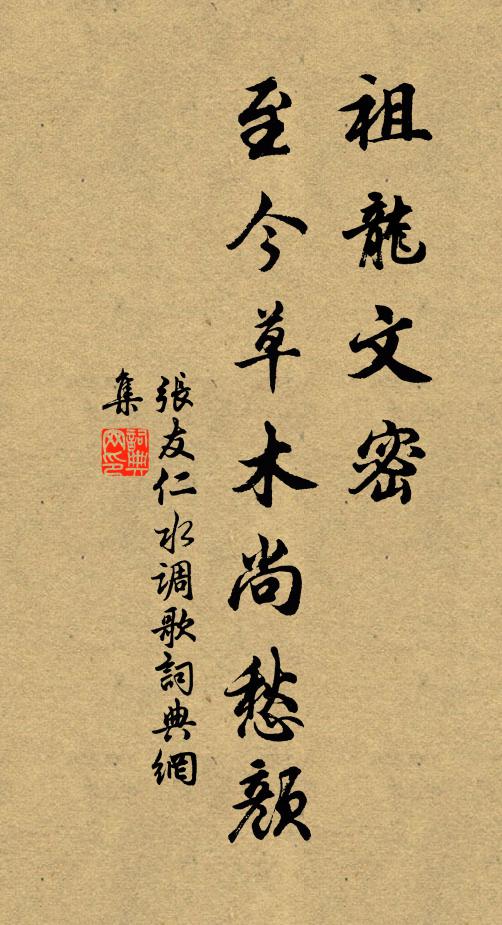 祖龍文密
至今草木尚愁顏
張友仁水調歌詞典網
集
詞典
网印